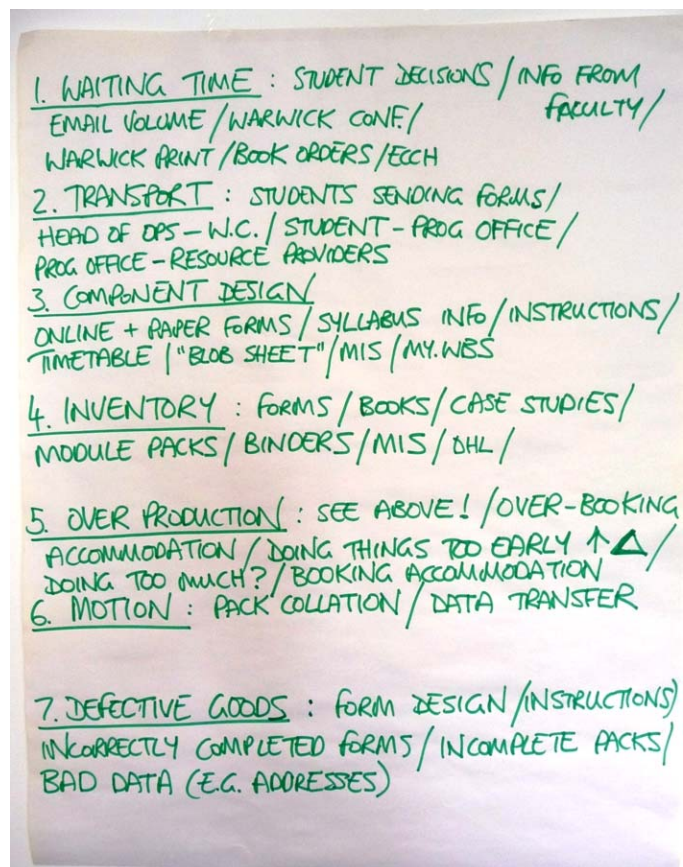 1. WAITING TIME : STUDENT DECISIONS / INFO FROM
FACULTY /
EMAIL VOLUME / WARWICK CONF. /
WARWICK PRINT / BOOK ORDERS / ECCH
2. TRANSPORT : STUDENTS SENDING FORMS /
HEAD OF OPS - W.C. / STUDENT - PROG OFFICE /
PROG OFFICE - RESOURCE PROVIDERS
3. COMPONENT DESIGN
ONLINE + PAPER FORMS / SYLLABUS INFO / INSTRUCTIONS /
TIMETABLE / "BLOB SHEET" / MIS / MY.WBS
4. INVENTORY : FORMS / BOOKS / CASE STUDIES /
MODULE PACKS / BINDERS / MIS / DHL /
5. OVER PRODUCTION : SEE ABOVE! / OVER-BOOKING
ACCOMMODATION / DOING THINGS TOO EARLY ↑ Δ /
DOING TOO MUCH? / BOOKING ACCOMMODATION
6. MOTION : PACK COLLATION / DATA TRANSFER
7. DEFECTIVE GOODS : FORM DESIGN / INSTRUCTIONS /
INCORRECTLY COMPLETED FORMS / INCOMPLETE PACKS /
BAD DATA (E.G. ADDRESSES)